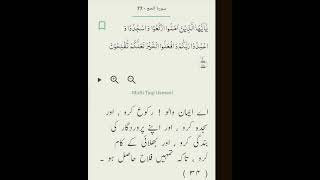 سورة الحج - ٢٢
يَٰٓأَيُّهَا الَّذِينَ آمَنُوا ارْكَعُوا وَاسْجُدُوا وَ
اعْبُدُوا رَبَّكُمْ وَافْعَلُوا الْخَيْرَ لَعَلَّكُمْ تُفْلِحُونَ
Mufti Taqi Usmani
اے ایمان والو ! رکوع کرو ، اور
سجدہ کرو ، اور اپنے پروردگار کی
بندگی کرو ، اور بھلائی کے کام
کرو ، تاکہ تمہیں فلاح حاصل ہو ۔
( ٣٤ )